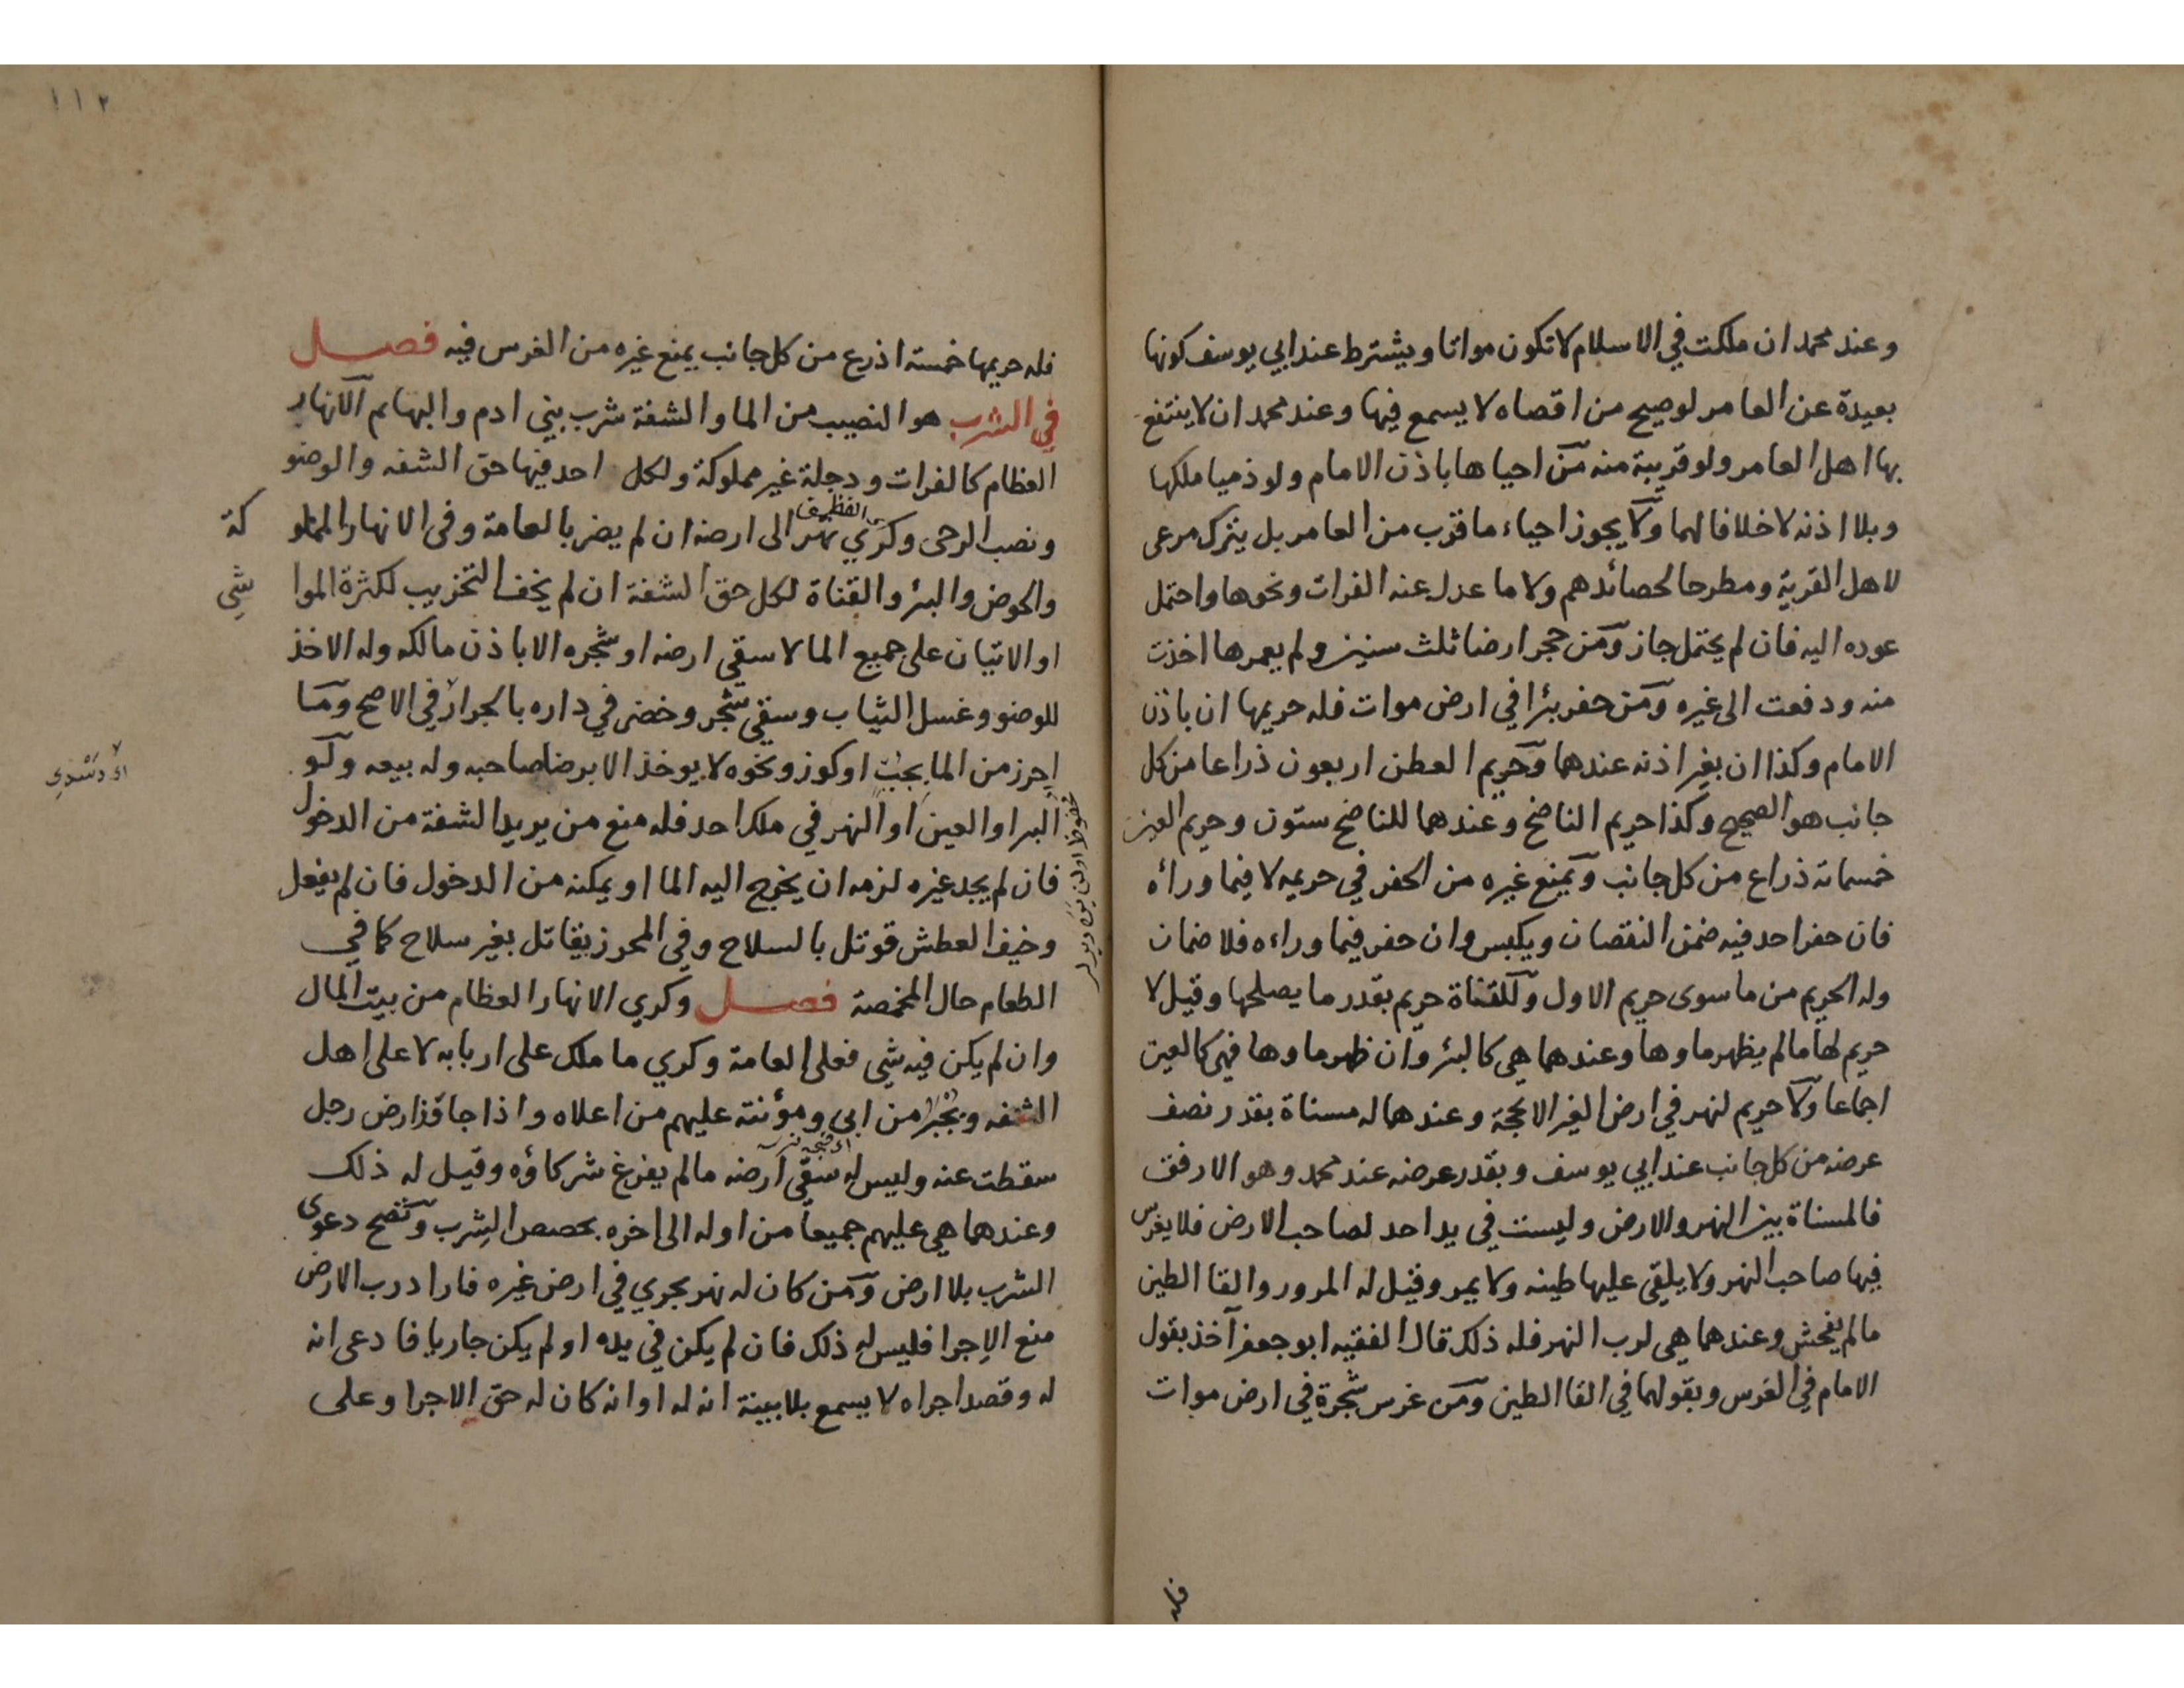 وعند محمد ان ملكت في الاسلام لا تكون مواتا ويشترط عند ابي يوسف كونها
بعيدة عن العامر لو صيح من اقصاه لا يسمع فيها وعند محمد ان لا ينتفع
بها اهل العامر ولو قريبة منه من احياها باذن الامام ولو ذميا ملكها
وبلا اذنه لا خلافا لهما ولا يجوز احياء ما قرب من العامر بل يترك مرعى
لاهل القرية ومطرحا لحصائدهم ولا ما عدل عنه الفرات ونحوها واحتمل
عوده اليه فان لم يحتمل جاز ومن حجر ارضا ثلث سنين ولم يعمرها اخذت
منه ودفعت الى غيره ومن حفر بئرا في ارض موات فله حريمها ان باذن
الامام وكذا ان بغير اذنه عندهما وحريم العطن اربعون ذراعا من كل
جانب هو الصحيح وكذا حريم الناضح وعندهما للناضح ستون وحريم العين
خمسمائة ذراع من كل جانب ويمنع غيره من الحفر في حريمه لا فيما وراه
فان حفر احد فيه ضمن النقصان ويكبس وان حفر فيما وراءه فلا ضمان
وله الحريم من ما سوى حريم الاول وللقناة حريم بقدر ما يصلحها وقيل لا
حريم لها ما لم يظهر ماوها وعندهما هي كالبئر وان ظهر ماوها فهي كالعين
اجماعا ولا حريم لنهر في ارض الغير الا بحجة وعندهما له مسناة بقدر نصف
عرضه من كل جانب عند ابي يوسف وبقدر عرضه عند محمد وهو الارفق
فالمسناة بين النهر والارض وليست في يد احد لصاحب الارض فلا يغرس
فيها صاحب النهر ولا يلقي عليها طينه ولا يمر وقيل له المرور والقا الطين
ما لم يفحش وعندهما هي لرب النهر فله ذلك قال الفقيه ابو جعفر آخذ بقول
الامام في الغرس وبقولهما في القا الطين ومن غرس شجرة في ارض موات
فله
١١٢
فله حريمها خمسة اذرع من كل جانب يمنع غيره من الغرس فيه فصل
في الشرب هو النصيب من الما والشفة شرب بني ادم والبهائم الانهار
العظام كالفرات ودجلة غير مملوكة ولكل احد فيها حق الشفه والوضو
ونصب الرحى وكري نهر الى ارضه ان لم يضر بالعامة وفي الانهار المملوكة
والحوض والبئر والقناة لكل حق الشفة ان لم يخف التخريب لكثرة المواشي
او الاتيان على جميع الما لا سقي ارضه او شجره الا باذن مالكه وله الاخذ
للوضو وغسل الثياب وسقي شجر وخضر في داره بالجرار في الاصح وما
احرز من الما بجب او كوز ونحوه لا يوخذ الا برضا صاحبه وله بيعه ولو
البر او العين او النهر في ملك احد فله منع من يريد الشفة من الدخول
فان لم يجد غيره لزمه ان يخرج اليه الما او يمكنه من الدخول فان لم يفعل
وخيف العطش قوتل بالسلاح وفي المحرز يقاتل بغير سلاح كما في
الطعام حال المخمصة فصل وكري الانهار العظام من بيت المال
وان لم يكن فيه شي فعلى العامة وكري ما ملك على اربابه لا على اهل
الشفه ويجبر من ابى ومؤنته عليهم من اعلاه واذا جاوز ارض رجل
سقطت عنه وليس له سقي ارضه ما لم يفرغ شركاؤه وقيل له ذلك
وعندهما هي عليهم جميعا من اوله الى اخره بحصص الشرب وتصح دعوى
الشرب بلا ارض ومن كان له نهر يجري في ارض غيره فاراد رب الارض
منع الاجرا فليس له ذلك فان لم يكن في يده او لم يكن جاريا فادعى انه
له وقصد اجراه لا يسمع بلا بينة انه له او انه كان له حق الاجرا وعلى